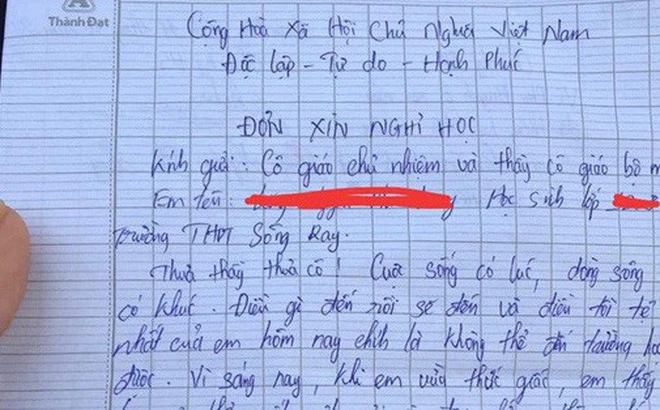 Thành Đạt
Cộng Hoà Xã Hội Chủ Nghĩa Việt Nam
Độc lập - Tự do - Hạnh Phúc
ĐƠN XIN NGHỈ HỌC
Kính gửi: Cô giáo chủ nhiệm và thầy cô giáo bộ m
Em tên: Học sinh lớp
Trường THPT Sông Ray.
Thưa thầy thưa cô! Cuộc sống có lúc, dòng sông
có khúc. Điều gì đến rồi sẽ đến và điều tồi tệ
nhất của em hôm nay chính là không thể đến trường họ
được. Vì sáng nay, khi em vừa thức giấc, em thấy